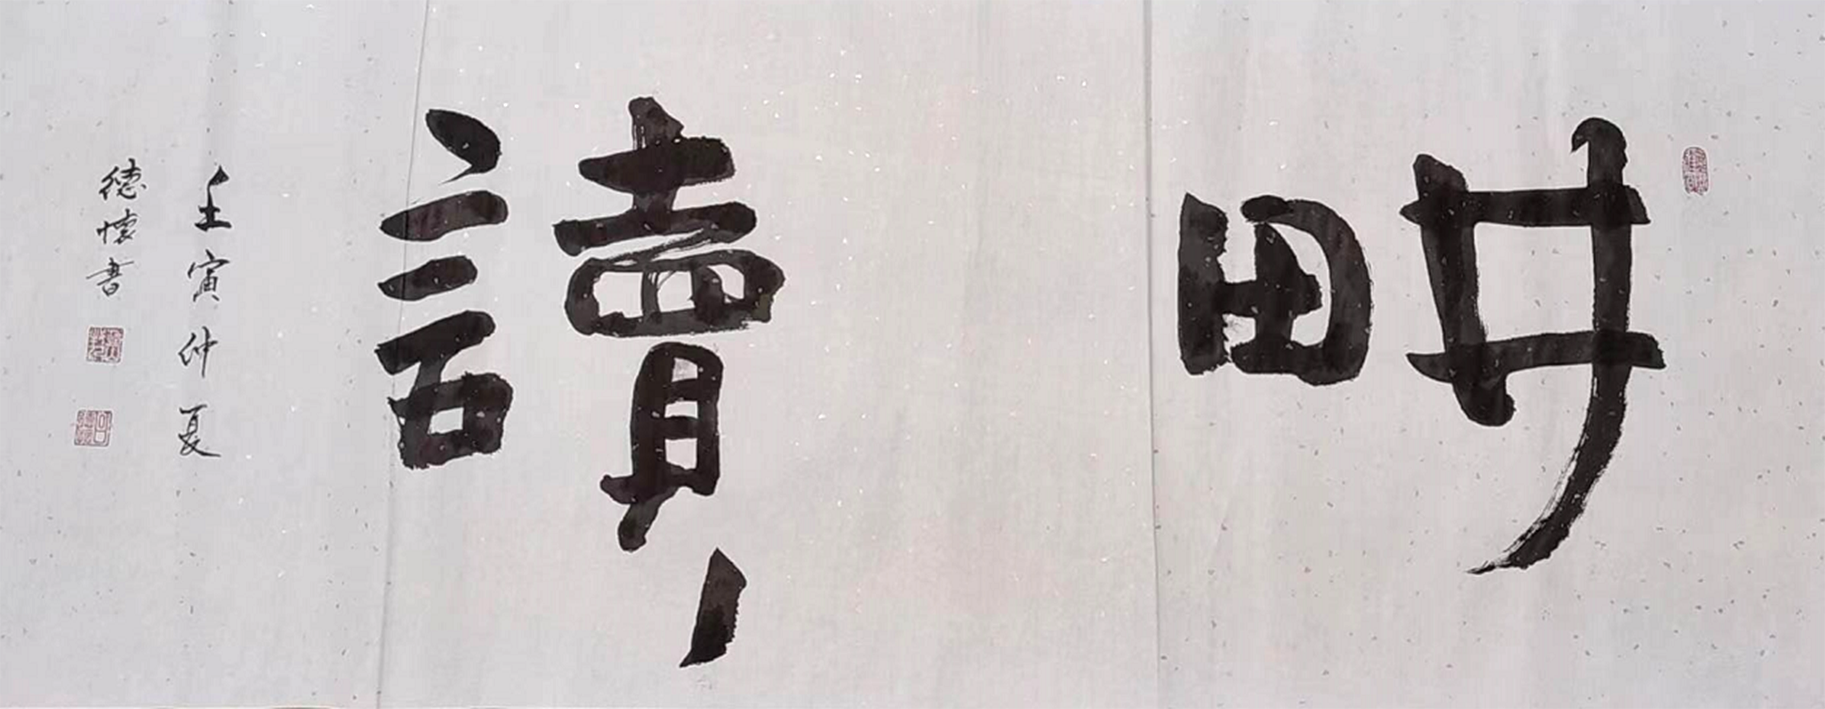 畊讀
壬寅仲夏
德懷書